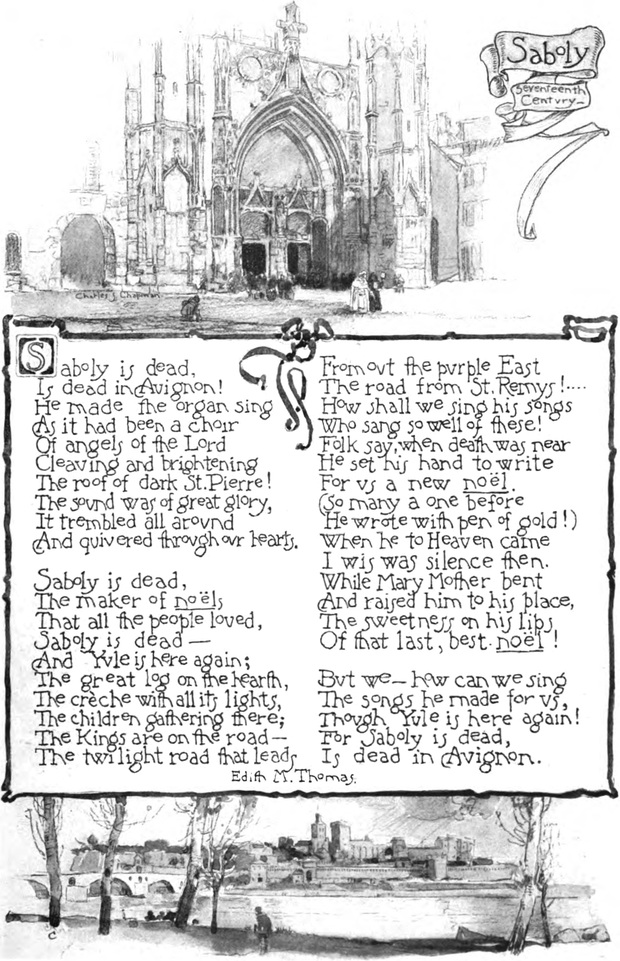 Saboly
Seventeenth
Century—
Charles S Chapman
Saboly is dead,
Is dead in Avignon!
He made the organ sing
As it had been a choir
Of angels of the Lord
Cleaving and brightening
The roof of dark St. Pierre!
The sound was of great glory,
It trembled all around
And quivered through our hearts.
Saboly is dead,
The maker of noëls
That all the people loved,
Saboly is dead—
And Yule is here again;
The great log on the hearth,
The crèche with all its lights,
The children gathering there;
The Kings are on the road—
The twilight road that leads
From out the purple East
The road from St. Remys!....
How shall we sing his songs
Who sang so well of these!
Folk say, when death was near
He set his hand to write
For us a new noël.
(So many a one before
He wrote with pen of gold!)
When he to Heaven came
I wis was silence then.
While Mary Mother bent
And raised him to his place,
The sweetness on his lips
Of that last, best noël!
But we—how can we sing
The songs he made for us,
Though Yule is here again!
For Saboly is dead,
Is dead in Avignon.
Edith M. Thomas.
C